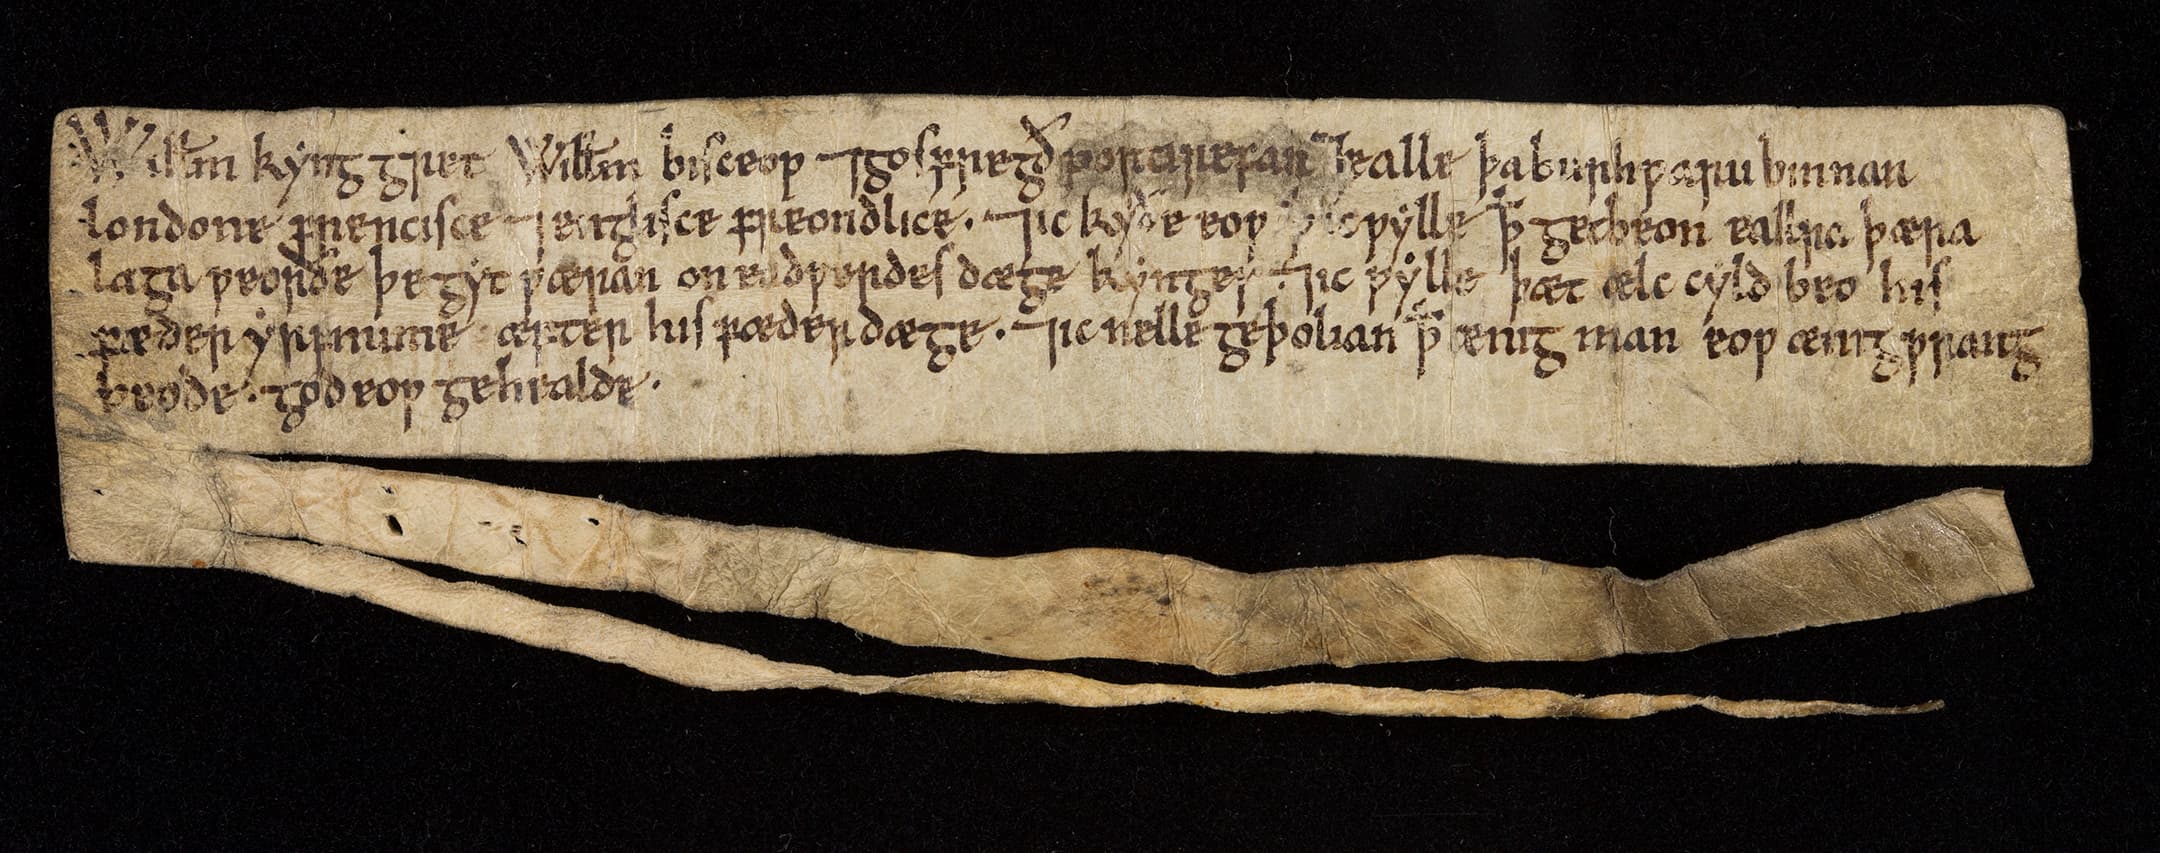 Willm kyng gret Willm bisceop ⁊ gosfregð portirefan ⁊ ealle þa burhƿaru binnan
londone frencisce ⁊ englisce freondlice · ⁊ ic kyðe eoƿ þ ic ƿylle þ get beon eallra þæra
laga ƿeorðe þe gyt ƿæran on eadƿerdes dæge kynges · ⁊ ic ƿylle þæt ælc cyld beo his
fæder yrfnume æfter his fæder dæge · ⁊ ic nelle geþolian þ ænig man eoƿ ænig ƿrang
beode · god eoƿ gehealde ·